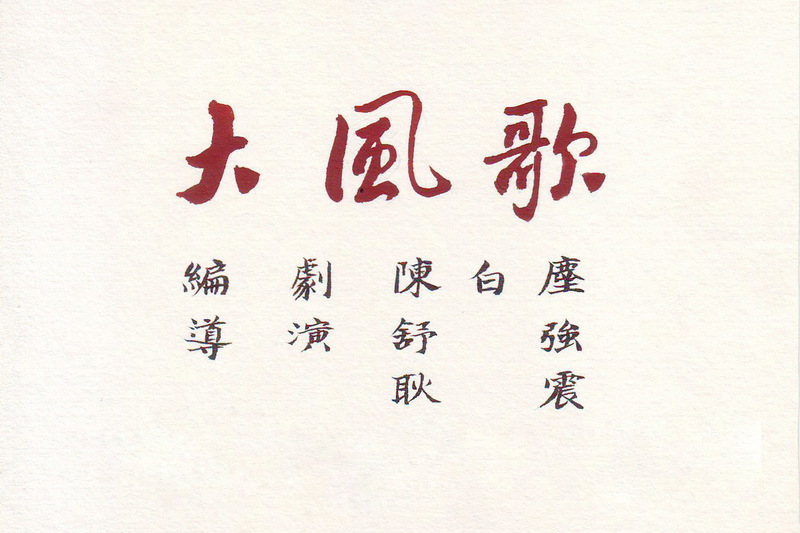 大風歌
編劇 陳白塵
導演 舒強
耿震